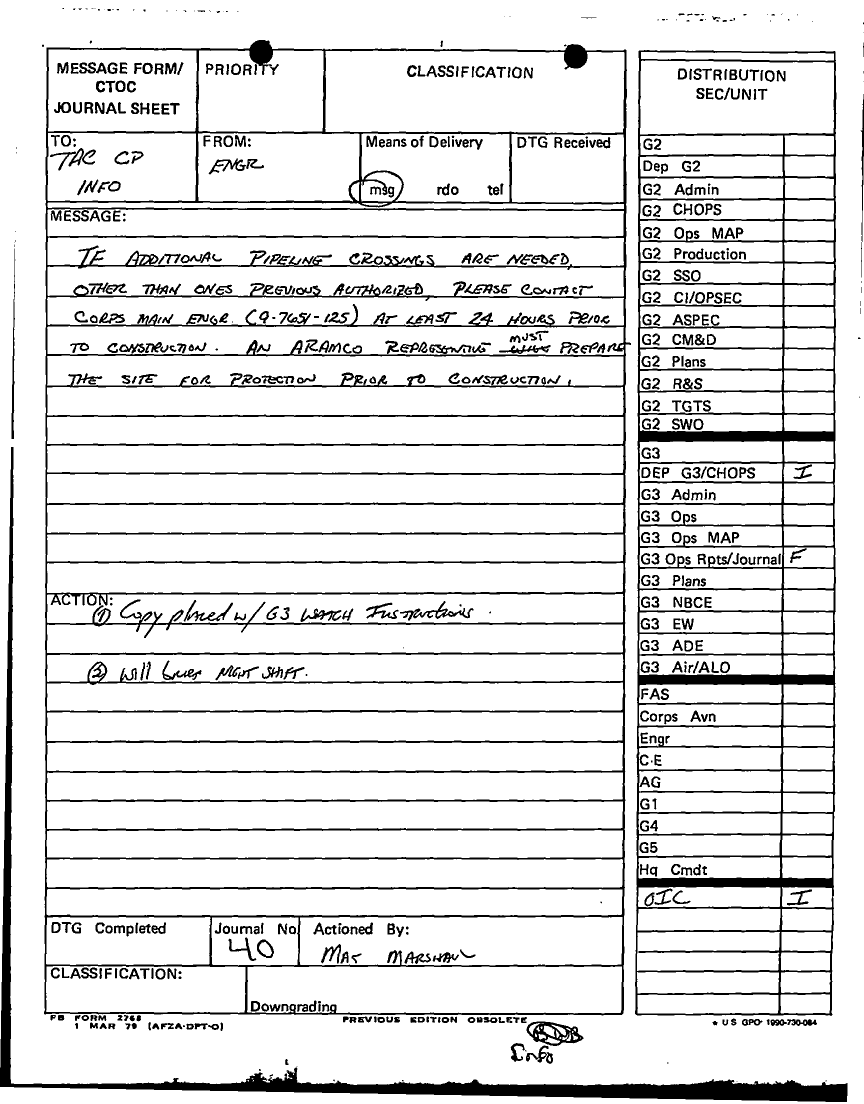 MESSAGE FORM/
CTOC
JOURNAL SHEET
PRIORITY
CLASSIFICATION
TO:
TAC CP
INFO
FROM:
ENGR
Means of Delivery
msg rdo tel
DTG Received
MESSAGE:
IF ADDITIONAL PIPELINE CROSSINGS ARE NEEDED,
OTHER THAN ONES PREVIOUS AUTHORIZED, PLEASE CONTACT
CORPS MAIN ENGR. (9-7651-125) AT LEAST 24 HOURS PRIOR
TO CONSTRUCTION. AN ARAMCO REPRESENTIVE MUST PREPARE
THE SITE FOR PROTECTION PRIOR TO CONSTRUCTION.
ACTION:
① Copy placed w/ G3 WATCH INSTRUCTIONS.
② Will brief NIGHT SHIFT.
DTG Completed
Journal No
40
Actioned By:
MAJ MARSHALL
CLASSIFICATION:
Downgrading
FB FORM 2768
1 MAR 79 (AFZA-DPT-O)
PREVIOUS EDITION OBSOLETE
Info
DISTRIBUTION
SEC/UNIT
G2
Dep G2
G2 Admin
G2 CHOPS
G2 Ops MAP
G2 Production
G2 SSO
G2 CI/OPSEC
G2 ASPEC
G2 CM&D
G2 Plans
G2 R&S
G2 TGTS
G2 SWO
G3
DEP G3/CHOPS I
G3 Admin
G3 Ops
G3 Ops MAP
G3 Ops Rpts/Journal F
G3 Plans
G3 NBCE
G3 EW
G3 ADE
G3 Air/ALO
FAS
Corps Avn
Engr
C-E
AG
G1
G4
G5
Hq Cmdt
OIC I
★ U S GPO 1990-730-084